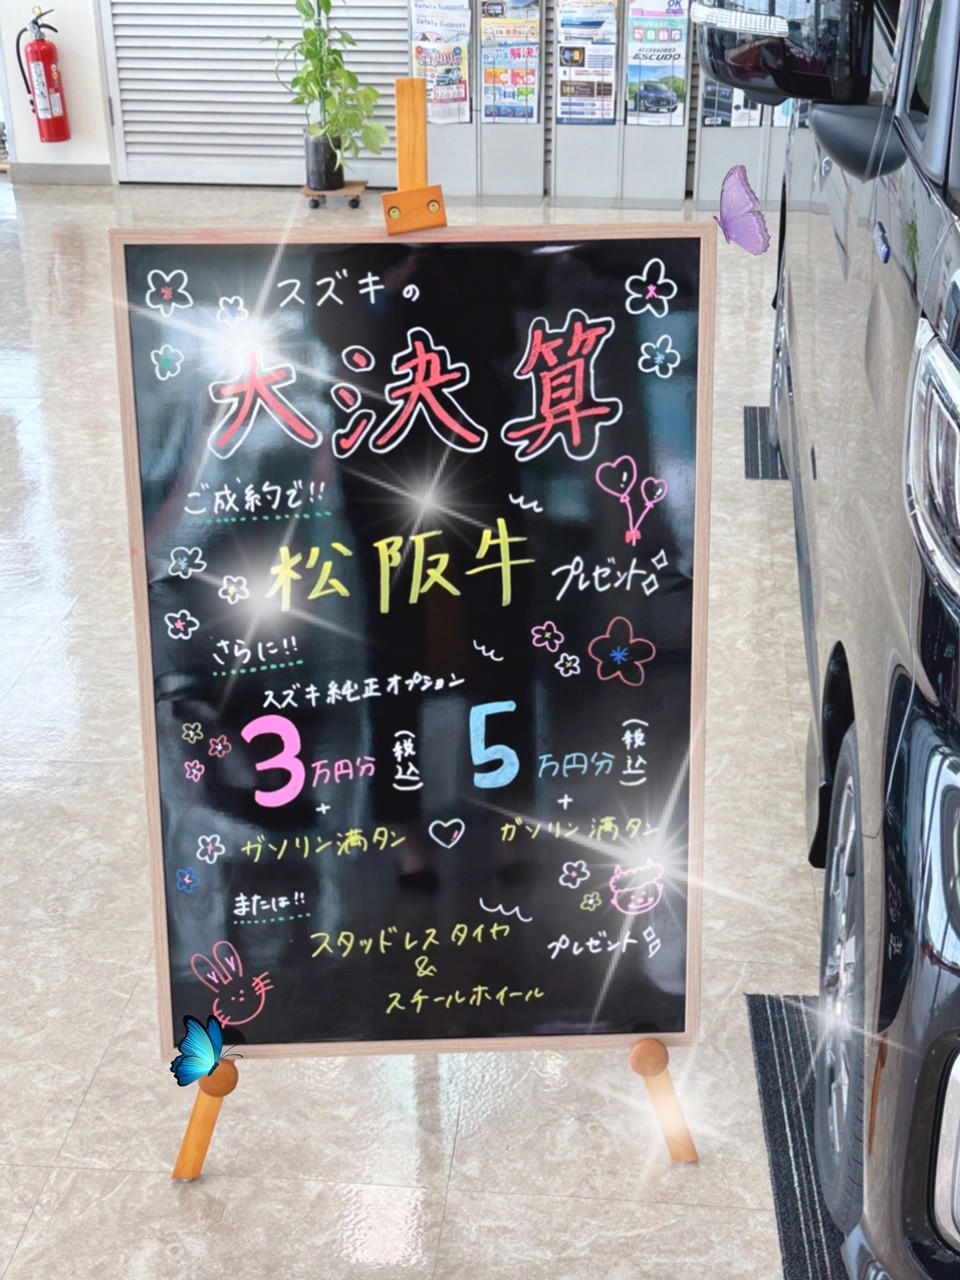 Safety Support
Safety Support
解決
OK
ACCESSORIES
ESCUDO
スズキの
大決算
ご成約で!!
松阪牛 プレゼント
さらに!!
スズキ純正オプション
3万円分(税込) 5万円分(税込)
+ +
ガソリン満タン ガソリン満タン
または!!
スタッドレスタイヤ
&
スチールホイール
プレゼント